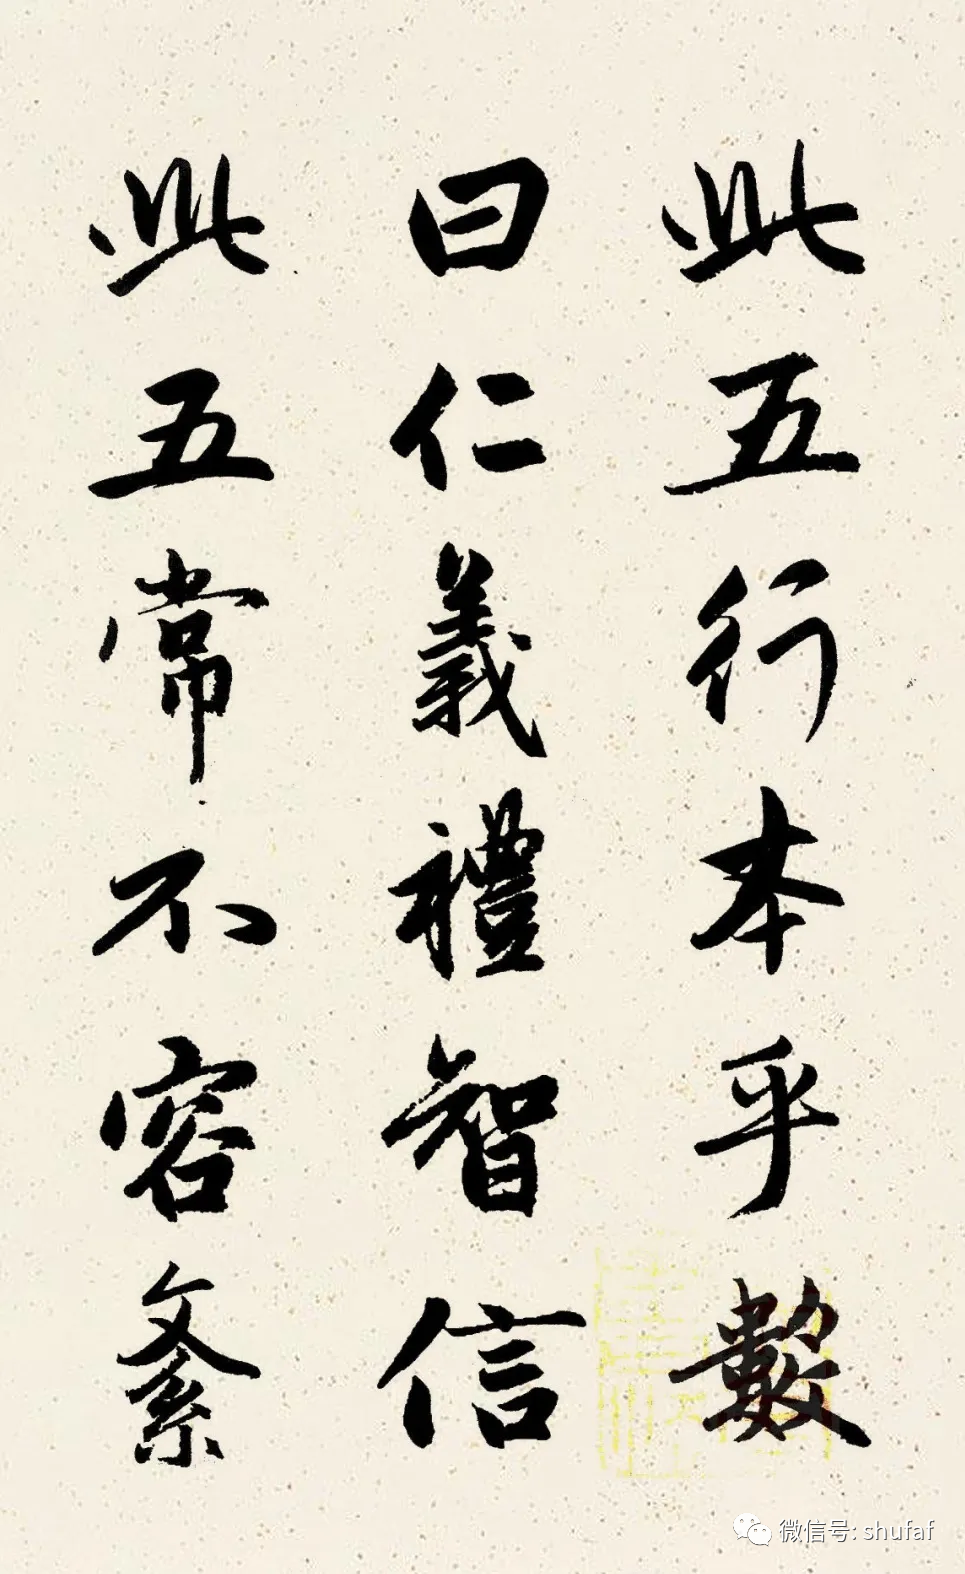 此五行本乎數
曰仁義禮智信
此五常不容紊
微信号: shufaf